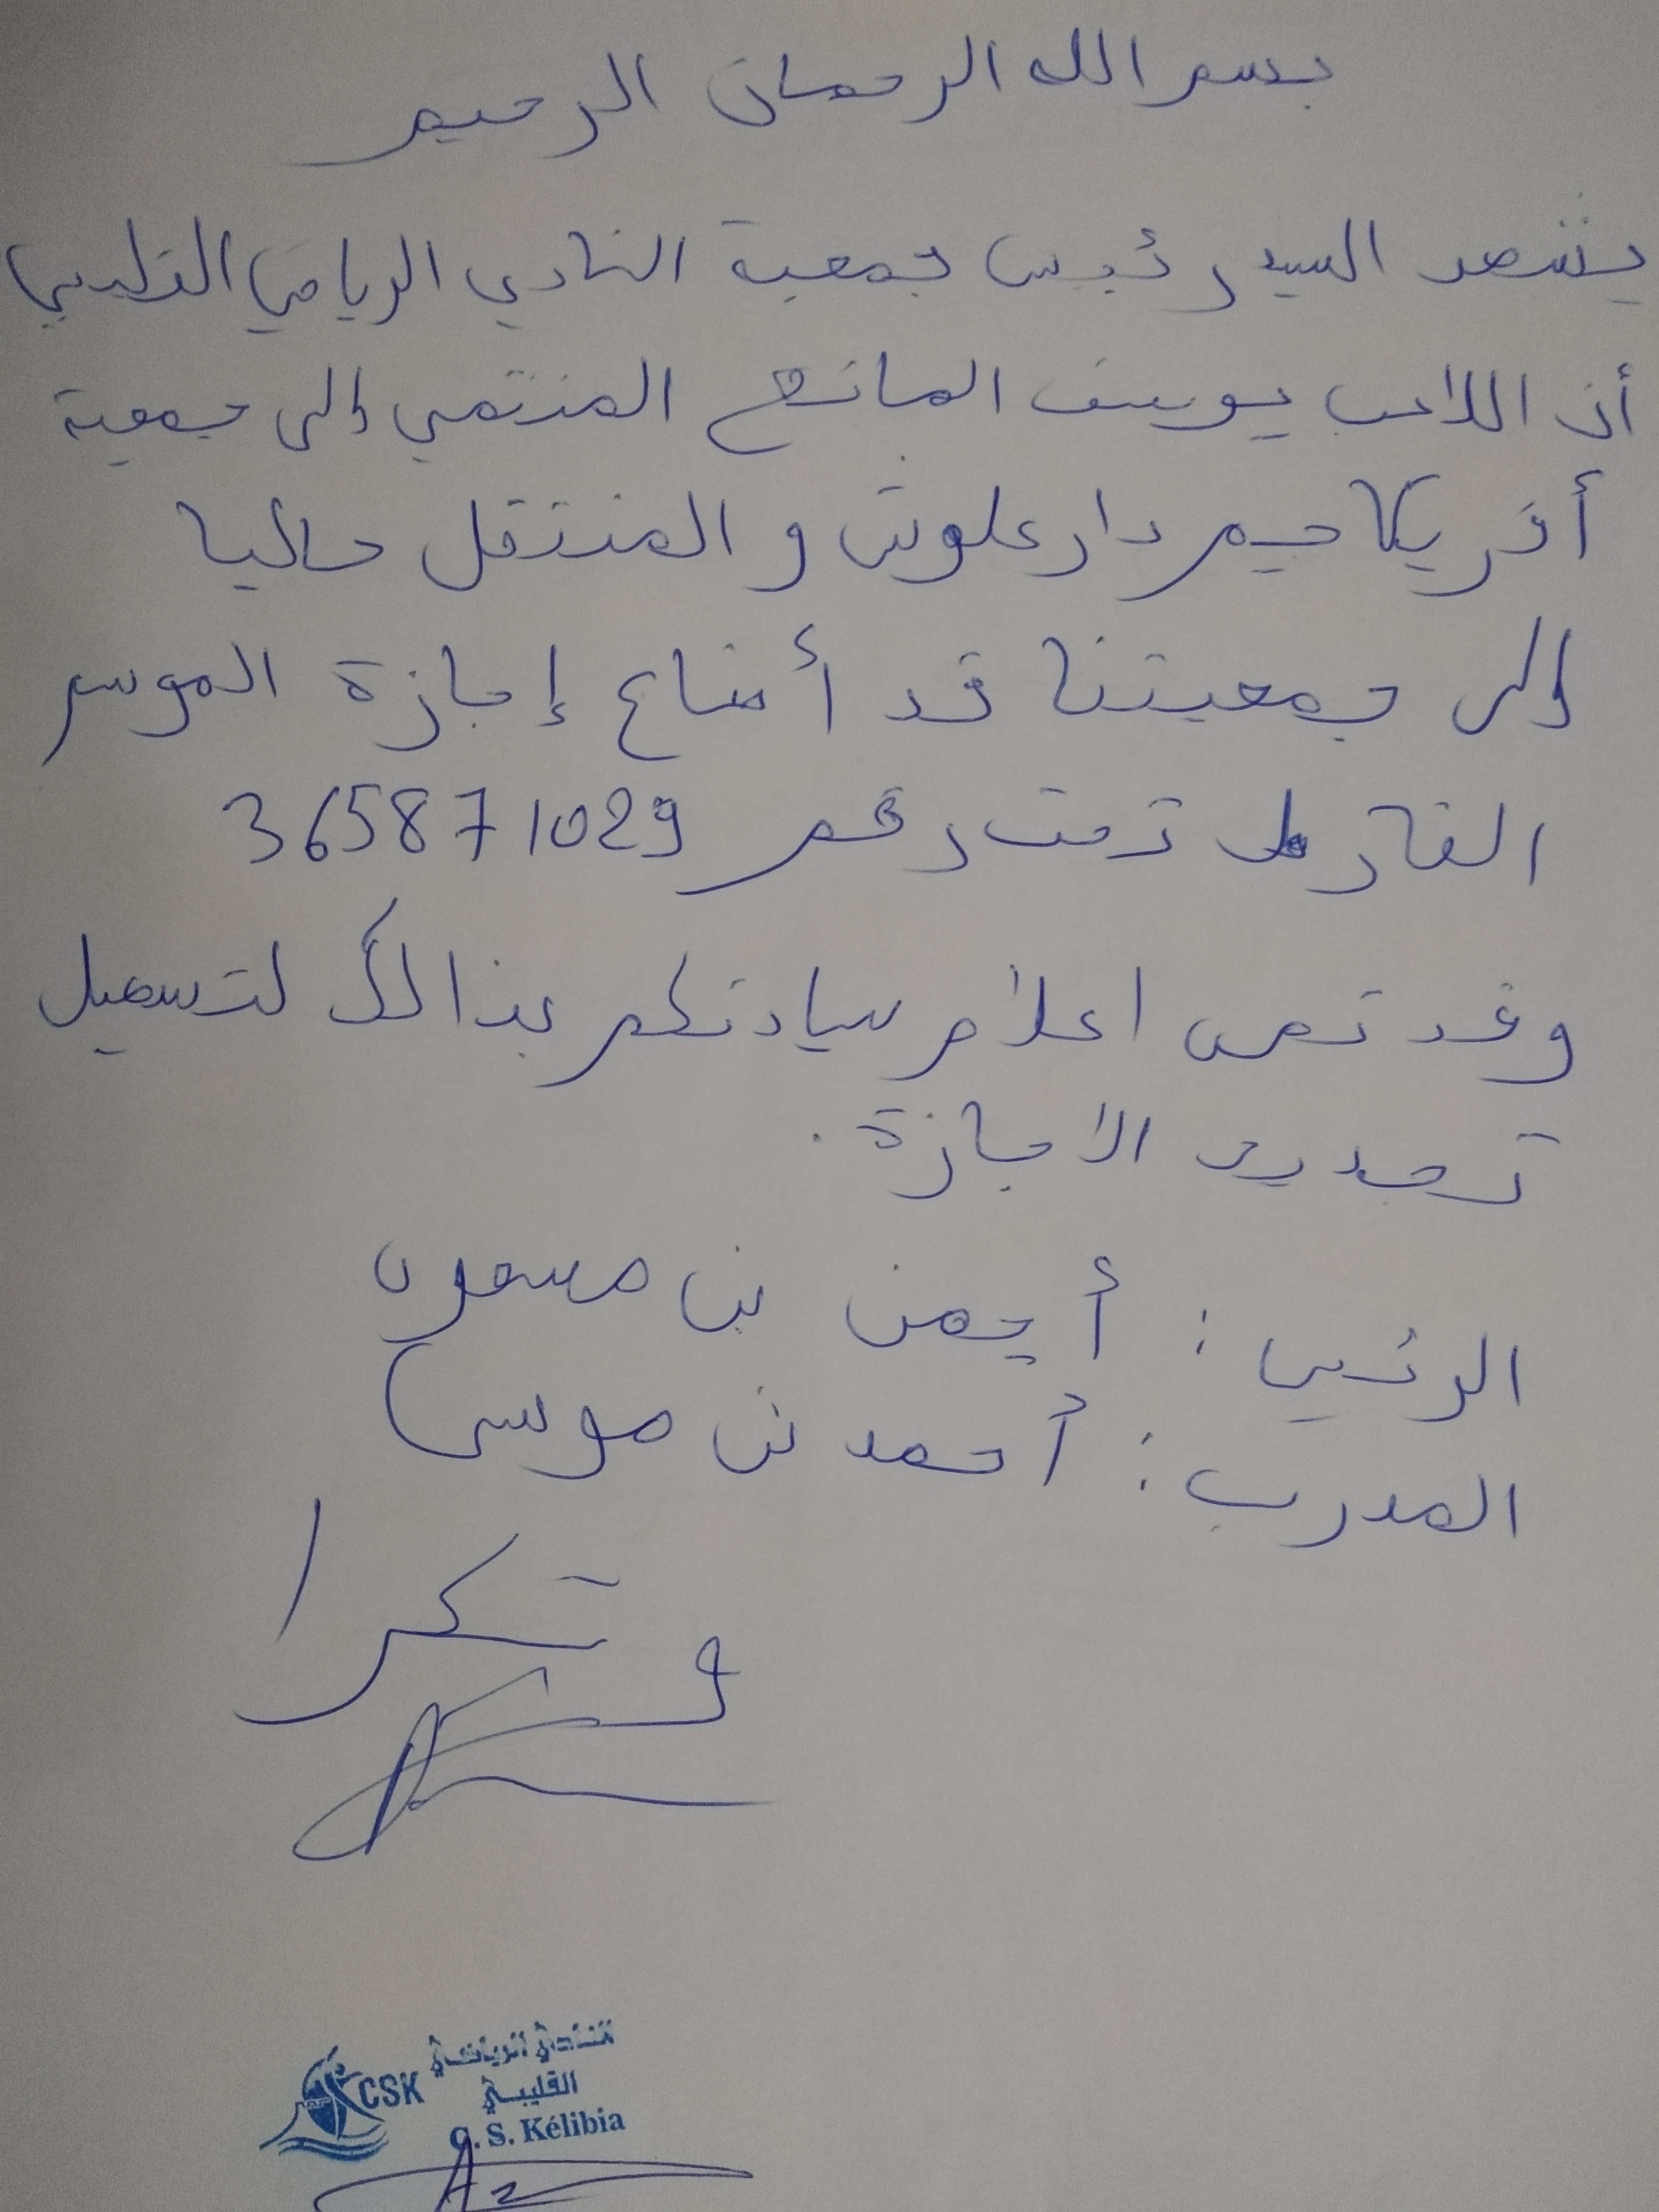 بسم الله الرحمان الرحيم
يشهد السيد رئيس جمعية النادي الرياضي القليبي
أن اللاعب يوسف المانع المنتمي إلى جمعية
أفريكا جيم دار علوش و المنتقل حاليا
إلى جمعيتنا قد أضاع إجازة الموسم
الفارط تحت رقم 365871029
وقد تمن اعلام سيادتكم بذالك لتسهيل
تجديد الاجازة.
الرئيس : أيمن بن مسعود
المدرب : أحمد بن موسى
وشكرا
النادي الرياضي
القليبي
CSK
C. S. Kélibia